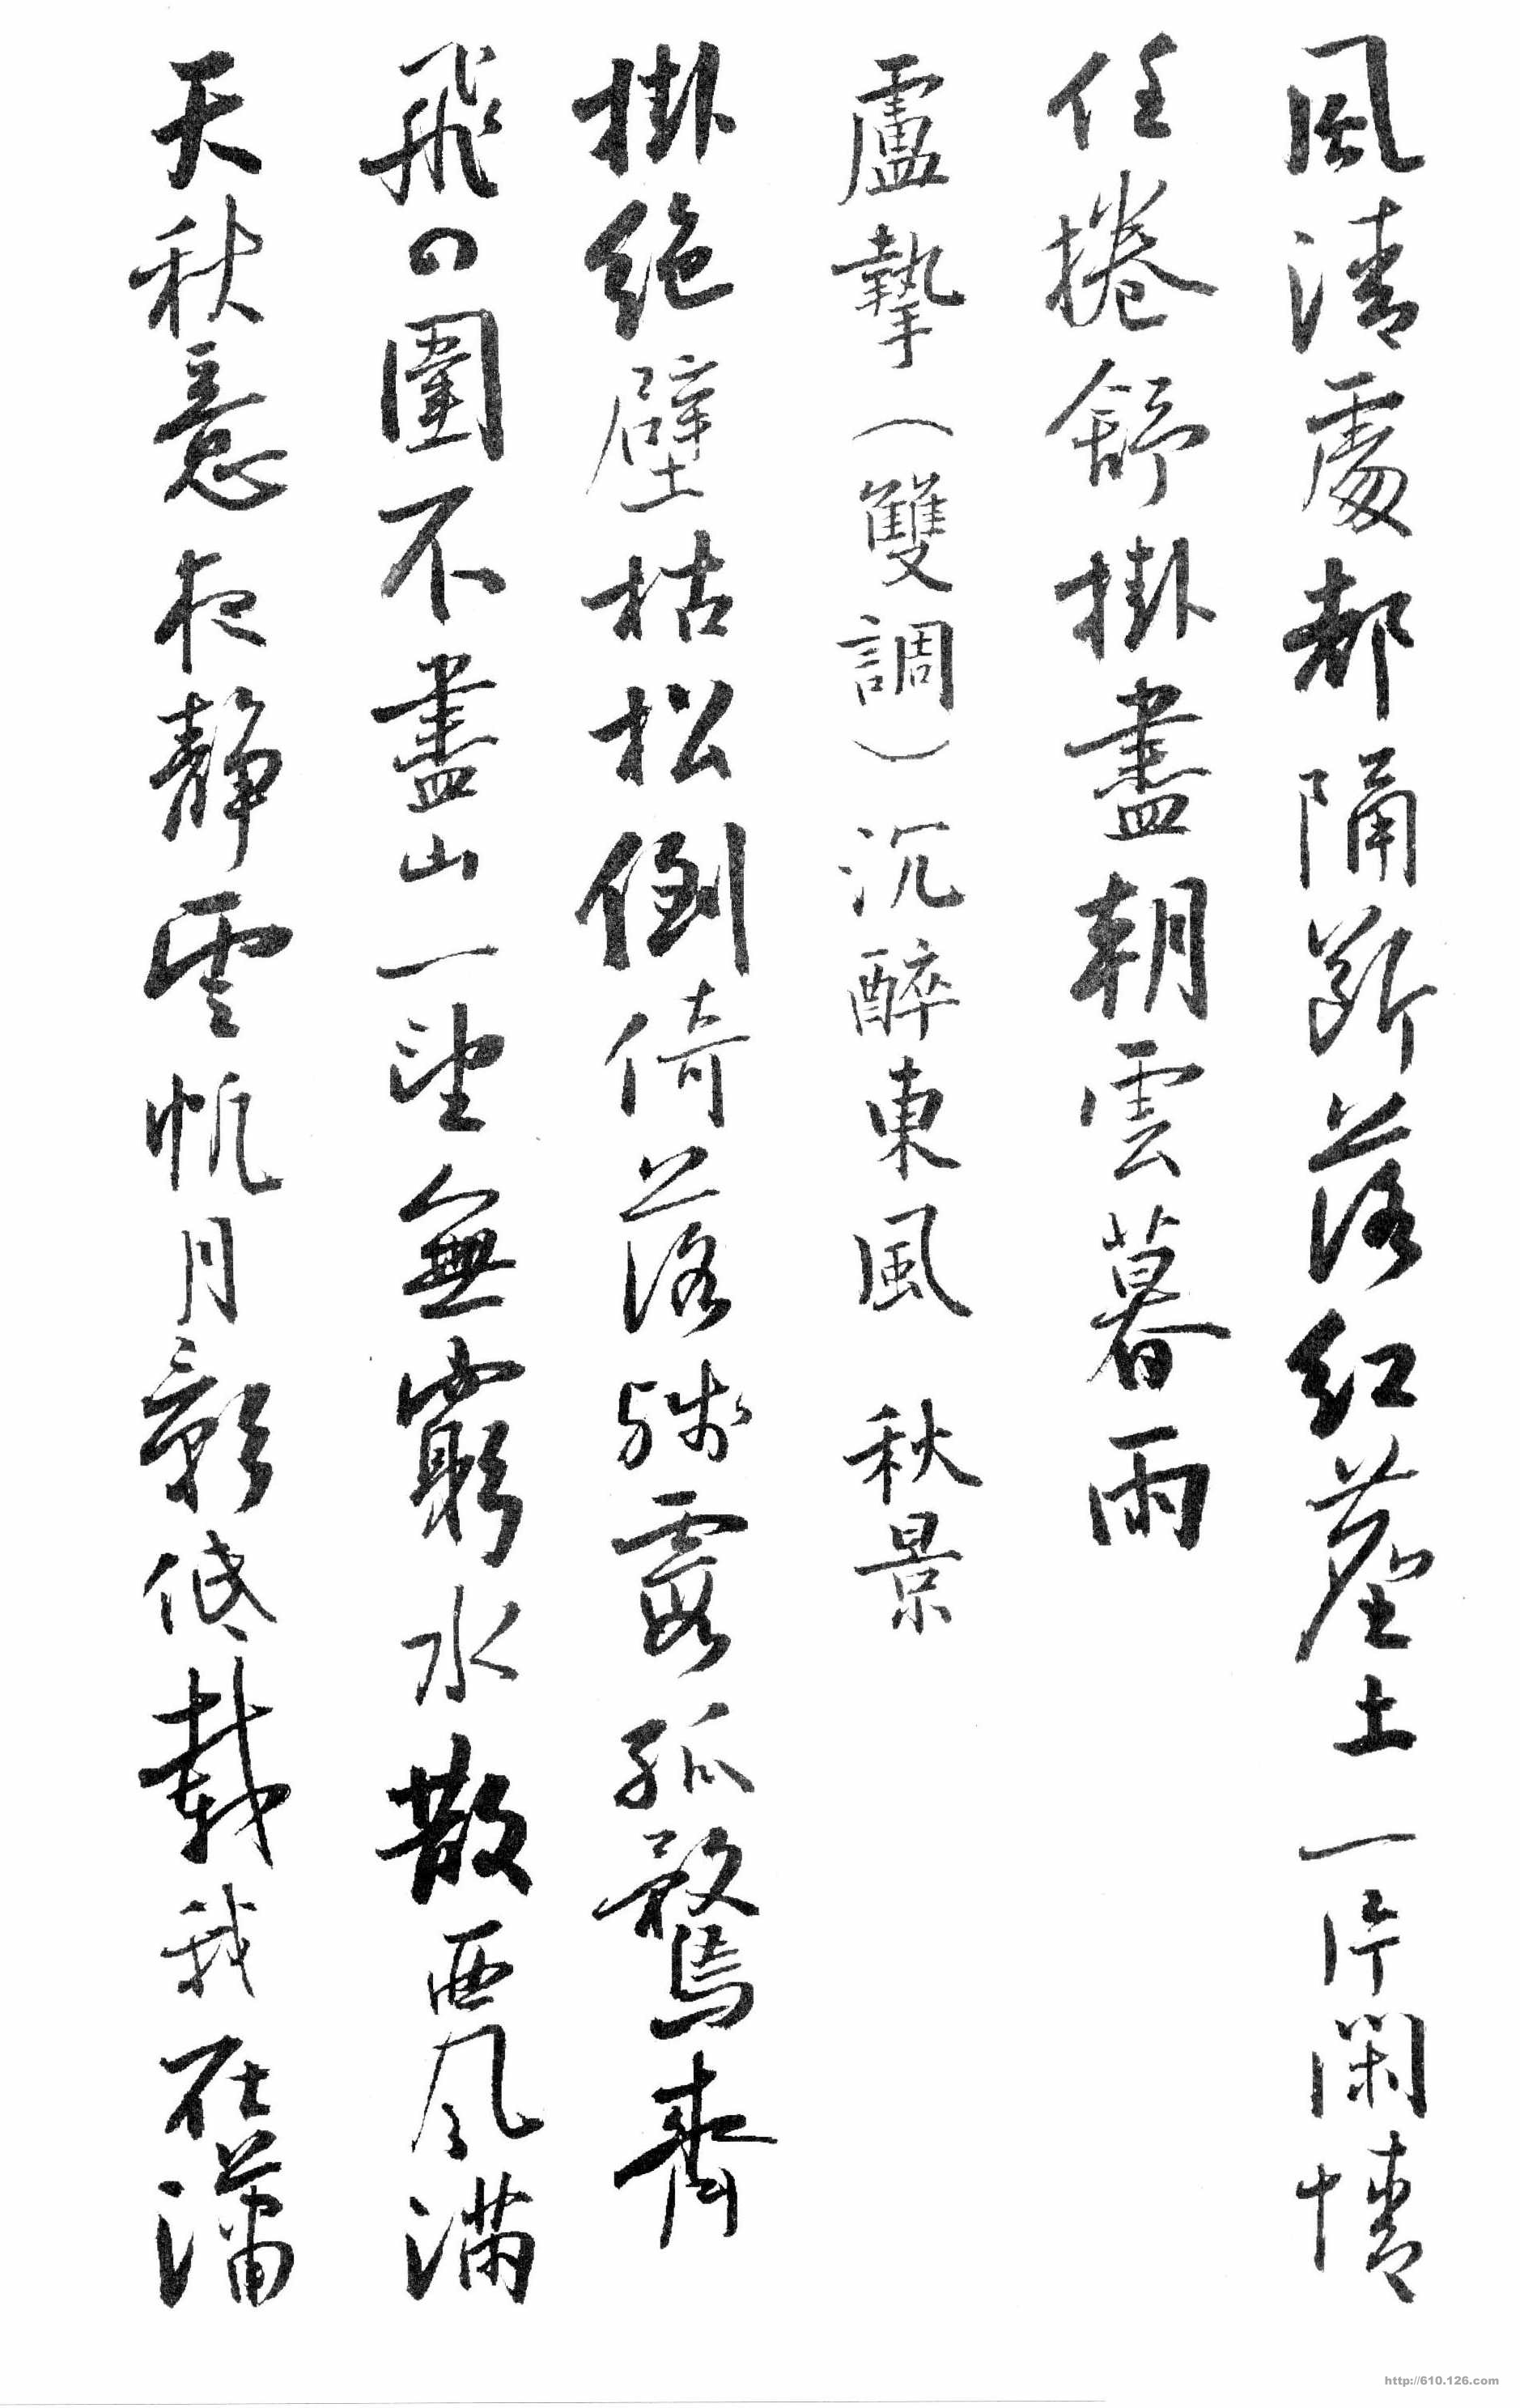 風清處都隔斷落紅塵土一片閑情
任捲舒掛盡朝雲暮雨
盧摯（雙調）沉醉東風 秋景
掛絶壁枯松倒倚落殘霞孤鶩齊
飛四圍不盡山一望無窮水散西風滿
天秋意夜靜雲帆月影低載我在瀟
http://610.126.com